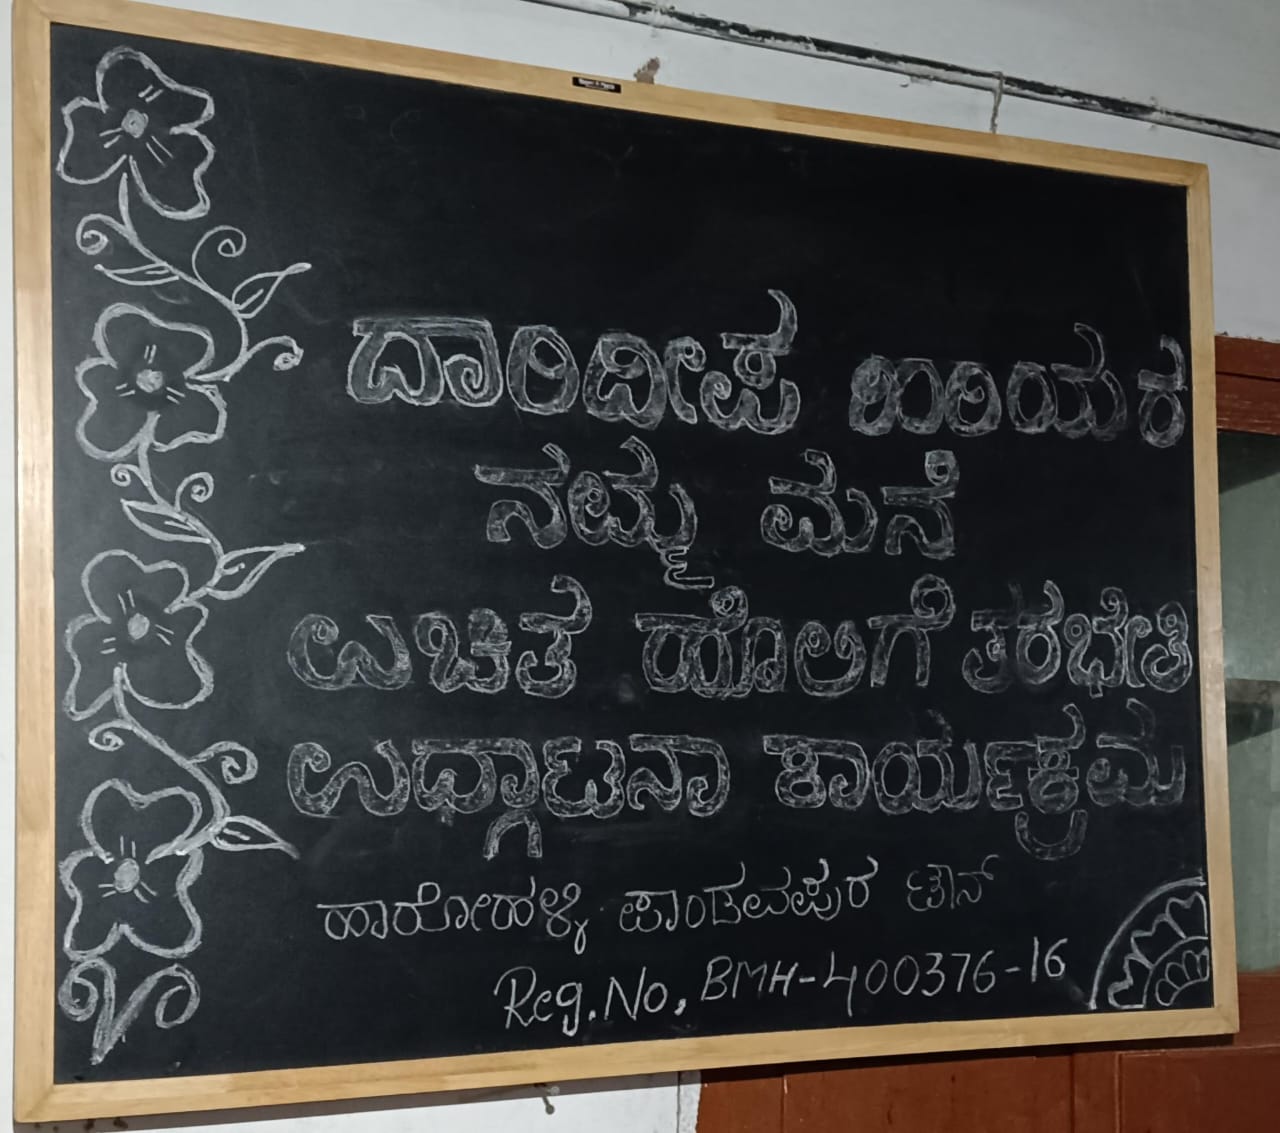 ದಾರಿದೀಪ ಹಿರಿಯರ
ನಮ್ಮ ಮನೆ
ಉಚಿತ ಹೊಲಿಗೆ ತರಭೇತಿ
ಉಧ್ಗಾಟನಾ ಕಾರ್ಯಕ್ರಮ
ಹಾರೋಹಳ್ಳಿ ಪಾಂಡವಪುರ ಟೌನ್
Reg.No. BMH-400376-16